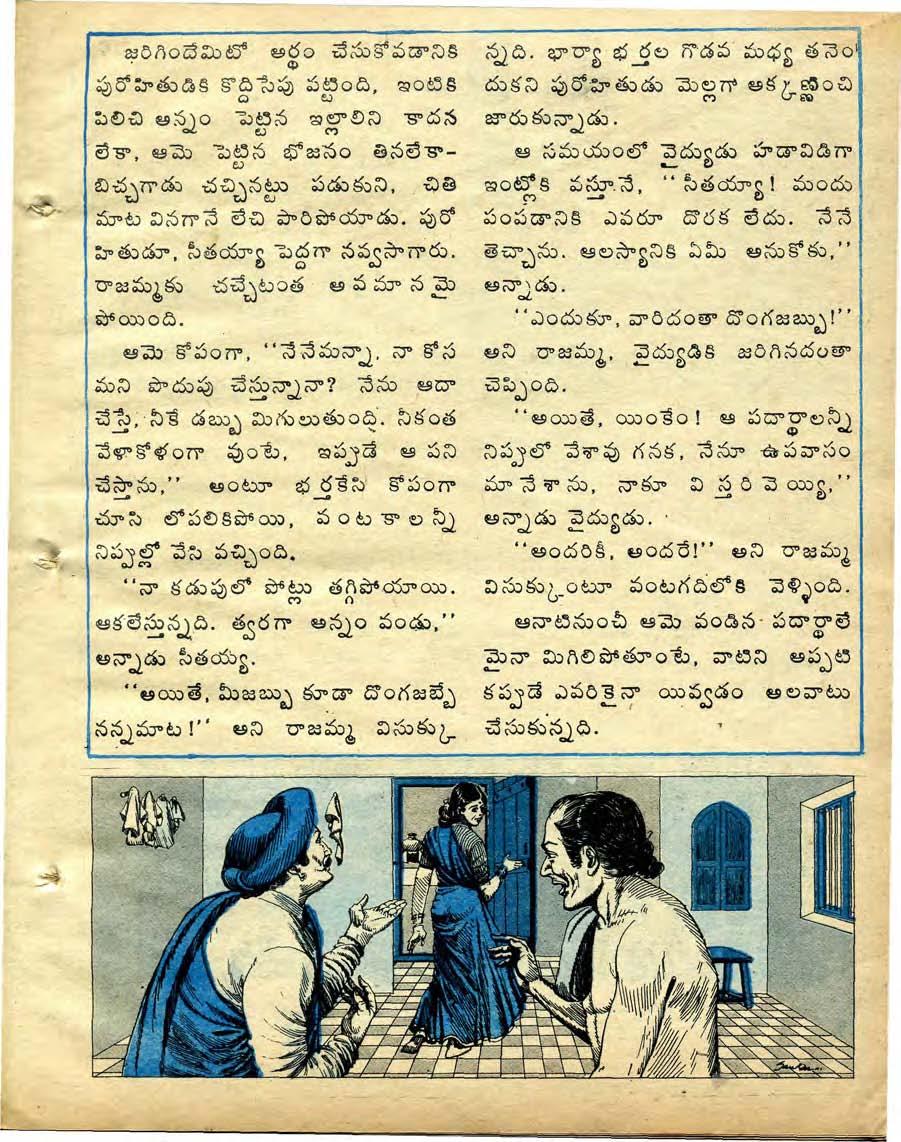 జరిగిందేమిటో అర్థం చేసుకోవడానికి
పురోహితుడికి కొద్దిసేపు పట్టింది, ఇంటికి
పిలిచి అన్నం పెట్టిన ఇల్లాలిని కాదన
లేకా, ఆమె పెట్టిన భోజనం తినలేకా-
బిచ్చగాడు చచ్చినట్టు పడుకుని, చితి
మాట వినగానే లేచి పారిపోయాడు. పురో
హితుడూ, సీతయ్యా పెద్దగా నవ్వసాగారు.
రాజమ్మకు చచ్చేటంత అవమానమై
పోయింది.
ఆమె కోపంగా, ‘‘నేనేమన్నా, నా కోస
మని పొదుపు చేస్తున్నానా? నేను ఆదా
చేస్తే, నీకే డబ్బు మిగులుతుంది. నీకంత
వేళాకోళంగా వుంటే, ఇప్పుడే ఆ పని
చేస్తాను,’’ అంటూ భర్తకేసి కోపంగా
చూసి లోపలికిపోయి, వంటకాలన్నీ
నిప్పుల్లో వేసి వచ్చింది.
‘‘నా కడుపులో పోట్లు తగ్గిపోయాయి.
ఆకలేస్తున్నది. త్వరగా అన్నం వండు,’’
అన్నాడు సీతయ్య.
‘‘అయితే, మీజబ్బు కూడా దొంగజబ్బే
నన్నమాట!’’ అని రాజమ్మ విసుక్కు
న్నది. భార్యా భర్తల గొడవ మధ్య తనెం
దుకని పురోహితుడు మెల్లగా అక్కణ్ణించి
జారుకున్నాడు.
ఆ సమయంలో వైద్యుడు హడావిడిగా
ఇంట్లోకి వస్తూనే, ‘‘సీతయ్యా! మందు
పంపడానికి ఎవరూ దొరక లేదు. నేనే
తెచ్చాను. ఆలస్యానికి ఏమీ అనుకోకు,’’
అన్నాడు.
‘‘ఎందుకూ, వారిదంతా దొంగజబ్బు!’’
అని రాజమ్మ, వైద్యుడికి జరిగినదంతా
చెప్పింది.
‘‘అయితే, యింకేం! ఆ పదార్థాలన్నీ
నిప్పులో వేశావు గనక, నేనూ ఉపవాసం
మానేశాను, నాకూ విస్తరి వెయ్యి,’’
అన్నాడు వైద్యుడు.
‘‘అందరికీ, అందరే!’’ అని రాజమ్మ
విసుక్కుంటూ వంటగదిలోకి వెళ్ళింది.
ఆనాటినుంచీ ఆమె వండిన పదార్థాలే
మైనా మిగిలిపోతూంటే, వాటిని అప్పటి
కప్పుడే ఎవరికైనా యివ్వడం అలవాటు
చేసుకున్నది.